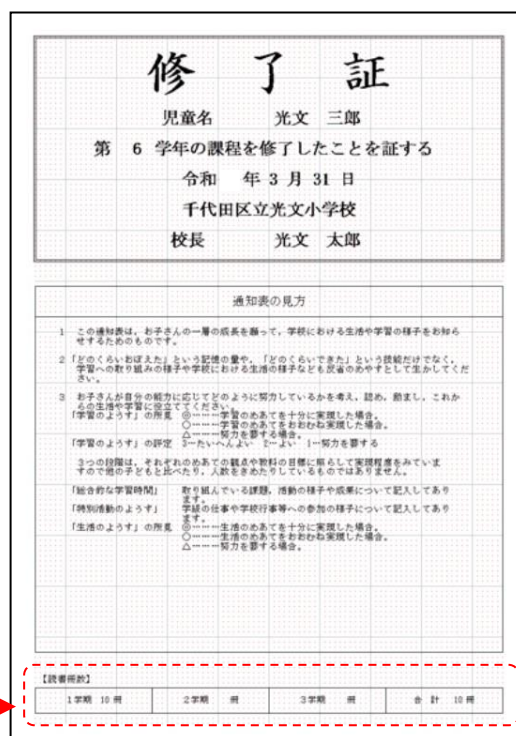 修 了 証
児童名 光文 三郎
第 6 学年の課程を修了したことを証する
令和 年 3 月 31 日
千代田区立光文小学校
校長 光文 太郎
通知表の見方
1 この通知表は、お子さんの一層の成長を願って、学校における生活や学習の様子をお知ら
せするためのものです。
2 「どのくらいおぼえた」という記憶の量や、「どのくらいできた」という技能だけでなく、
学習への取り組みの様子や学校における生活の様子なども反省のめやすとして生かしてくだ
さい。
3 お子さんが自分の能力に応じてどのように努力しているかを考え、認め、励まし、これか
らの生活や学習に役立ててください。
「学習のようす」の所見 ◎………学習のめあてを十分に実現した場合。
○………学習のめあてをおおむね実現した場合。
△………努力を要する場合。
「学習のようす」の評定 3…たいへんよい 2…よい 1…努力を要する
3つの段階は、それぞれのめあての観点や教科の目標に照らして実現程度をみていま
すので他の子どもと比べたり、人数をきめたりしているものではありません。
「総合的な学習時間」 取り組んでいる課題、活動の様子や成果について記入してあり
ます。
「特別活動のようす」 学級の仕事や学校行事等への参加の様子について記入してあり
ます。
「生活のようす」の所見 ◎………生活のめあてを十分に実現した場合。
○………生活のめあてをおおむね実現した場合。
△………努力を要する場合。
【読書冊数】
1学期 10 冊 2学期 冊 3学期 冊 合 計 10 冊